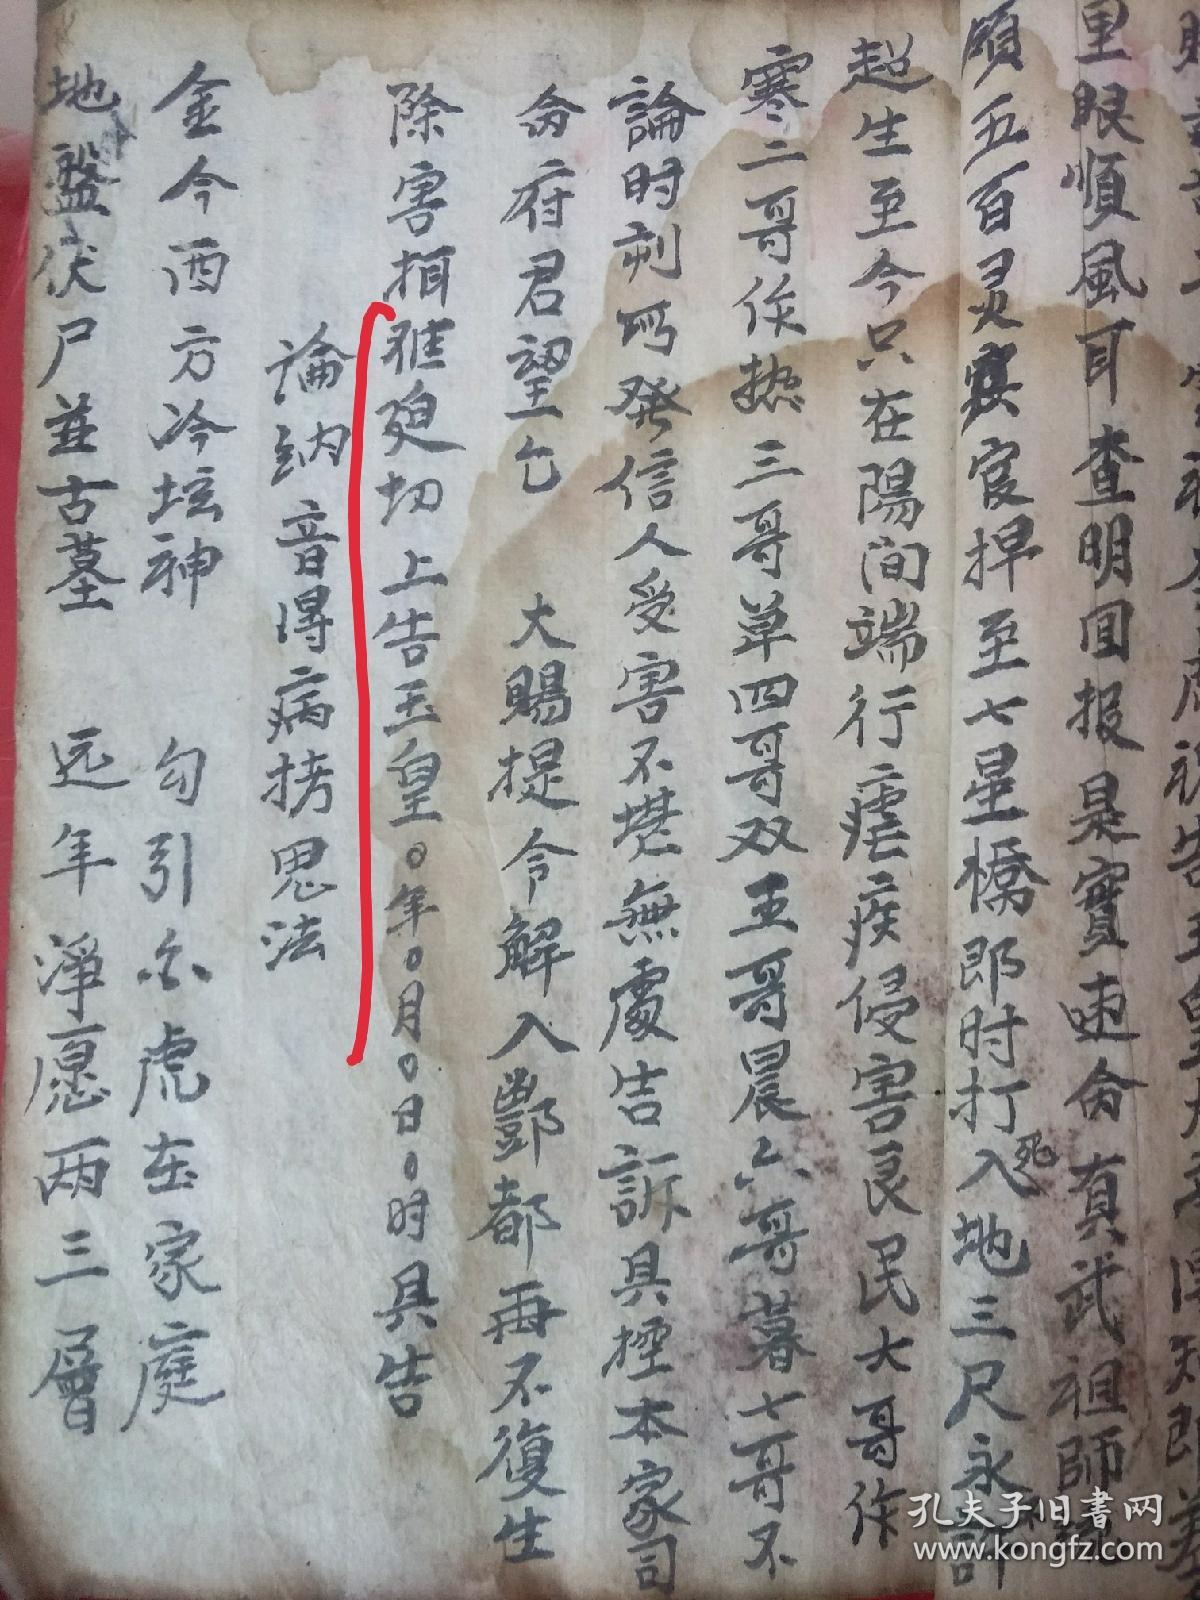 里眼順風耳查明回报是實速命真武祖師統
領五百灵官捍至七星橋即时打入死地三尺永不許
超生至今只在陽间端行瘧疾侵害良民大哥作
寒二哥作热三哥单四哥双五哥晨六哥暮七哥不
論时刻所發信人受害不堪無處告訴具控本家司
命府君望乞 大賜提令解入酆都再不復生
除害损雅廹切上告玉皇○年○月○日○时具告
論納音得病拷鬼法
金今酉方冷坛神 勾引白虎在家庭
地盤伏尸並古墓 远年淨愿兩三層
孔夫子旧书网
www.kongfz.com